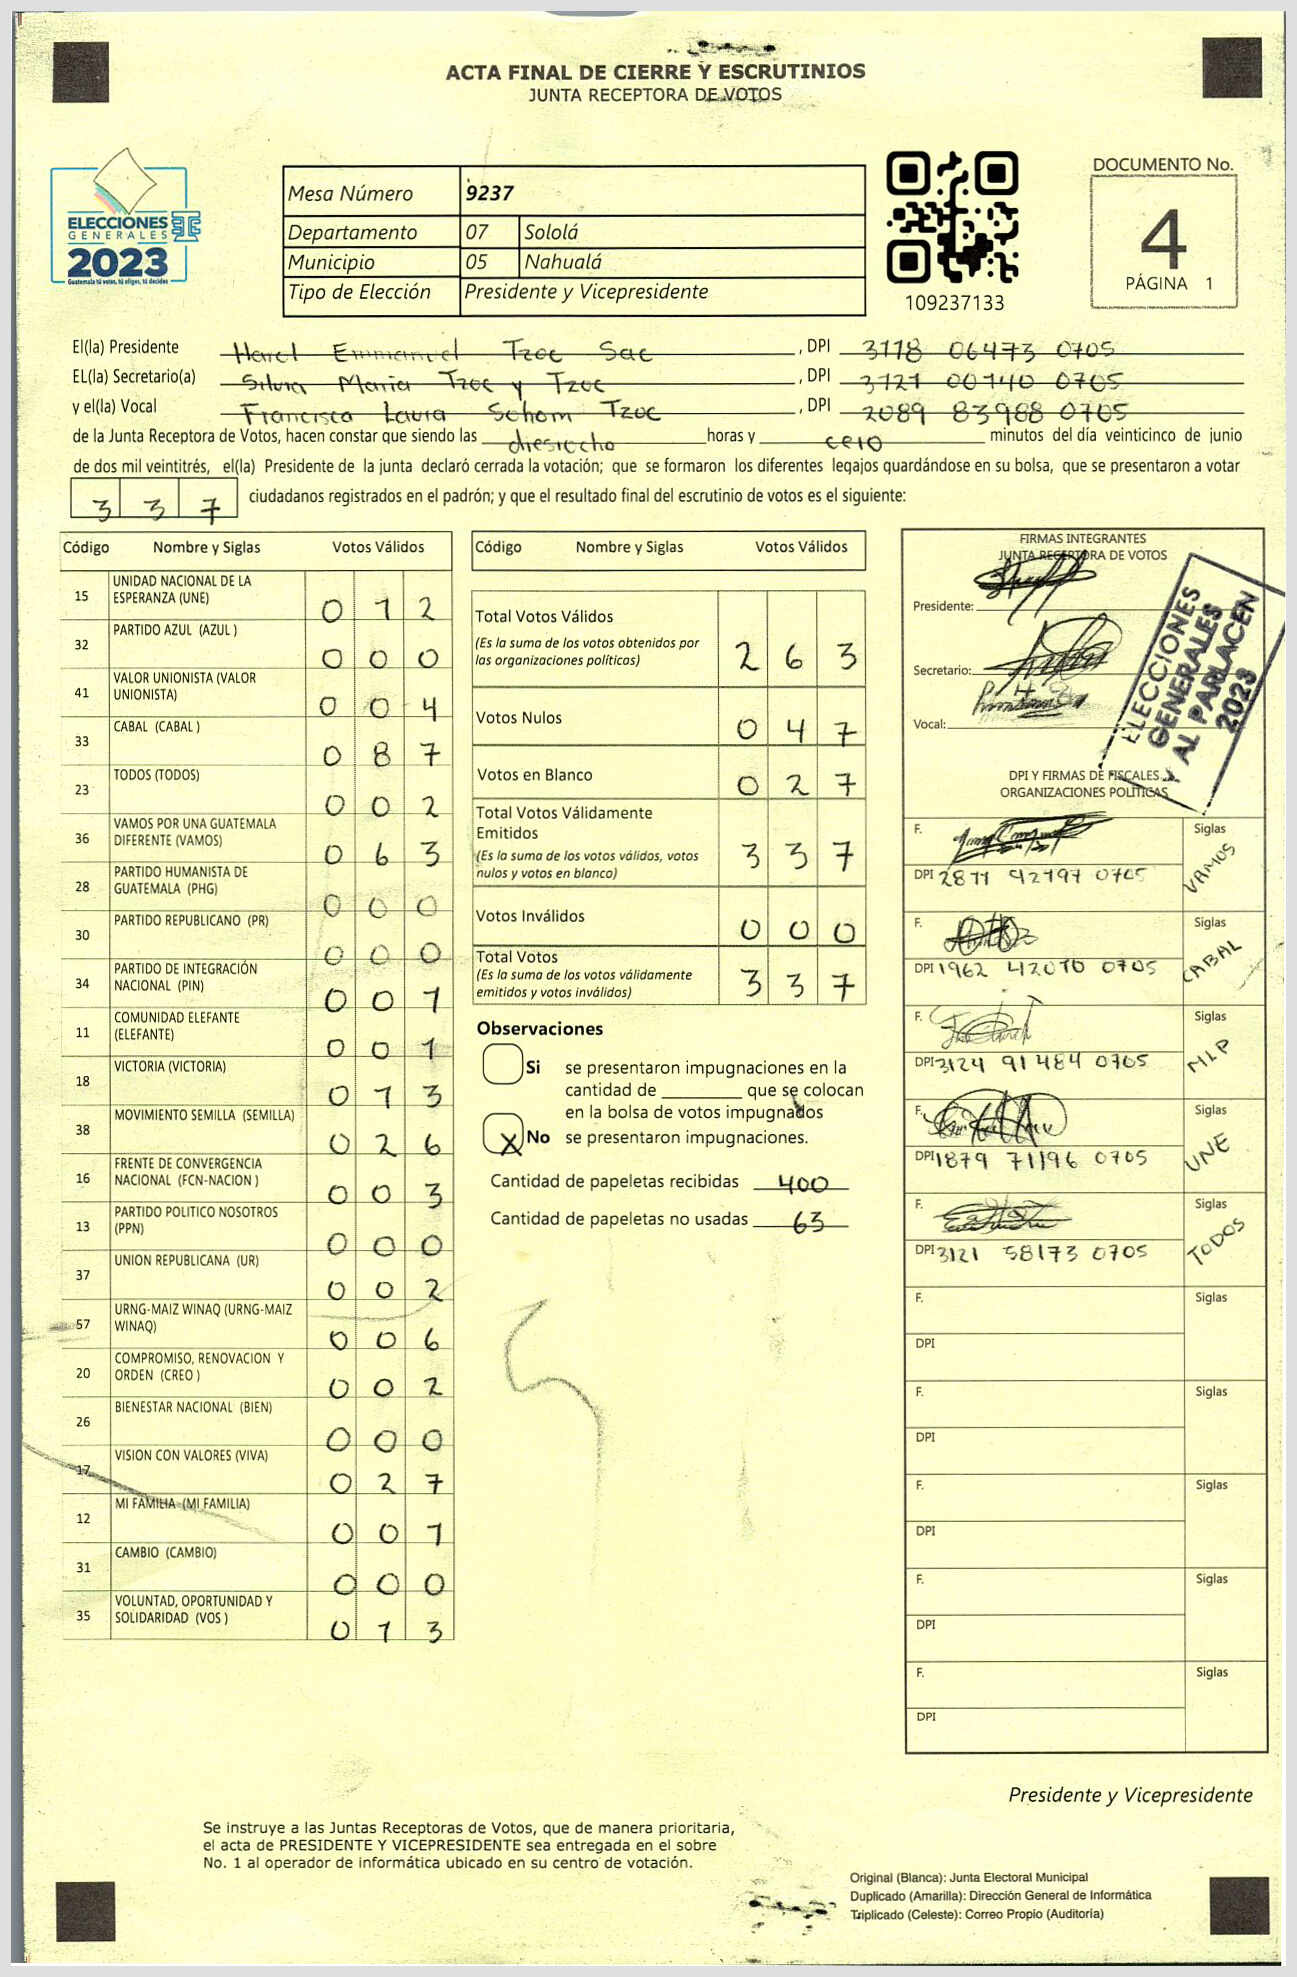 ACTA FINAL DE CIERRE Y ESCRUTINIOS
JUNTA RECEPTORA DE VOTOS
ELECCIONES
GENERALES
2023
Guatemala tú votas, tú eliges, tú decides
Mesa Número 9237
Departamento 07 Sololá
Municipio 05 Nahualá
Tipo de Elección Presidente y Vicepresidente
109237133
DOCUMENTO No.
4
PÁGINA 1
El(la) Presidente Harol Emmanuel Tzoc Sac, DPI 3118 06473 0705
EL(la) Secretario(a) Silvia Maria Tzoc y Tzoc, DPI 3121 00140 0705
y el(la) Vocal Francisca Laura Sohom Tzoc, DPI 2089 83988 0705
de la Junta Receptora de Votos, hacen constar que siendo las diesiocho horas y cero minutos del día veinticinco de junio
de dos mil veintitrés, el(la) Presidente de la junta declaró cerrada la votación; que se formaron los diferentes legajos guardándose en su bolsa, que se presentaron a votar
3 3 7 ciudadanos registrados en el padrón; y que el resultado final del escrutinio de votos es el siguiente:
Código Nombre y Siglas Votos Válidos
15 UNIDAD NACIONAL DE LA
ESPERANZA (UNE) 0 1 2
32 PARTIDO AZUL (AZUL ) 0 0 0
41 VALOR UNIONISTA (VALOR
UNIONISTA) 0 0 4
33 CABAL (CABAL ) 0 8 7
23 TODOS (TODOS) 0 0 2
36 VAMOS POR UNA GUATEMALA
DIFERENTE (VAMOS) 0 6 3
28 PARTIDO HUMANISTA DE
GUATEMALA (PHG) 0 0 0
30 PARTIDO REPUBLICANO (PR) 0 0 0
34 PARTIDO DE INTEGRACIÓN
NACIONAL (PIN) 0 0 1
11 COMUNIDAD ELEFANTE
(ELEFANTE) 0 0 1
18 VICTORIA (VICTORIA) 0 1 3
38 MOVIMIENTO SEMILLA (SEMILLA) 0 2 6
16 FRENTE DE CONVERGENCIA
NACIONAL (FCN-NACION ) 0 0 3
13 PARTIDO POLITICO NOSOTROS
(PPN) 0 0 0
37 UNION REPUBLICANA (UR) 0 0 2
57 URNG-MAIZ WINAQ (URNG-MAIZ
WINAQ) 0 0 6
20 COMPROMISO, RENOVACION Y
ORDEN (CREO ) 0 0 2
26 BIENESTAR NACIONAL (BIEN) 0 0 0
17 VISION CON VALORES (VIVA) 0 2 7
12 MI FAMILIA (MI FAMILIA) 0 0 1
31 CAMBIO (CAMBIO) 0 0 0
35 VOLUNTAD, OPORTUNIDAD Y
SOLIDARIDAD (VOS ) 0 1 3
Código Nombre y Siglas Votos Válidos
Total Votos Válidos
(Es la suma de los votos obtenidos por
las organizaciones políticas) 2 6 3
Votos Nulos 0 4 7
Votos en Blanco 0 2 7
Total Votos Válidamente
Emitidos
(Es la suma de los votos válidos, votos
nulos y votos en blanco) 3 3 7
Votos Inválidos 0 0 0
Total Votos
(Es la suma de los votos válidamente
emitidos y votos inválidos) 3 3 7
Observaciones
Si se presentaron impugnaciones en la
cantidad de ________ que se colocan
en la bolsa de votos impugnados
X No se presentaron impugnaciones.
Cantidad de papeletas recibidas 400
Cantidad de papeletas no usadas 63
FIRMAS INTEGRANTES
JUNTA RECEPTORA DE VOTOS
Presidente:
Secretario:
Vocal:
ELECCIONES
GENERALES
Y AL PARLACEN
2023
DPI Y FIRMAS DE FISCALES
ORGANIZACIONES POLÍTICAS
F. Siglas
DPI 2871 42797 0705 VAMOS
F. Siglas
DPI 1962 42070 0705 CABAL
F. Siglas
DPI 3124 91484 0705 MLP
F. Siglas
DPI 1879 71196 0705 UNE
F. Siglas
DPI 3121 58173 0705 TODOS
F. Siglas
DPI
F. Siglas
DPI
F. Siglas
DPI
F. Siglas
DPI
F. Siglas
DPI
Presidente y Vicepresidente
Se instruye a las Juntas Receptoras de Votos, que de manera prioritaria,
el acta de PRESIDENTE Y VICEPRESIDENTE sea entregada en el sobre
No. 1 al operador de informática ubicado en su centro de votación.
Original (Blanca): Junta Electoral Municipal
Duplicado (Amarilla): Dirección General de Informática
Triplicado (Celeste): Correo Propio (Auditoría)